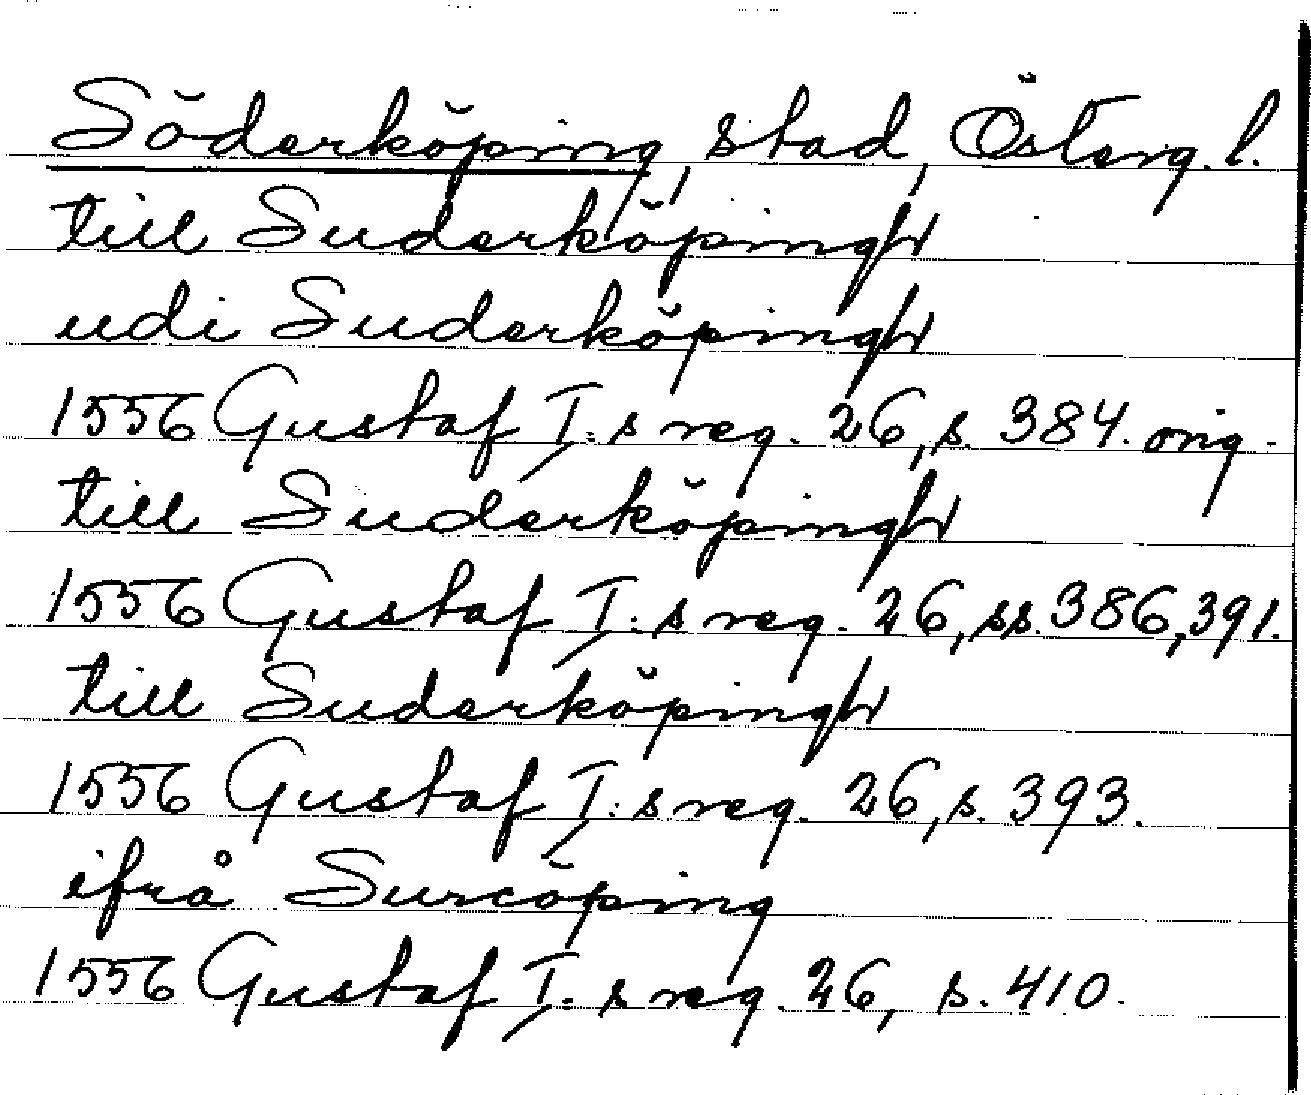 Söderköping, stad, Österg. l.
till Suderköpingh
udi Suderköpingh
1556 Gustaf I:s reg. 26, s. 384. orig.
till Suderköpingh
1556 Gustaf I:s reg. 26, ss. 386, 391.
till Suderköpingh
1556 Gustaf I:s reg. 26, s. 393.
ifrå Surcöping
1556 Gustaf I:s reg. 26, s. 410.